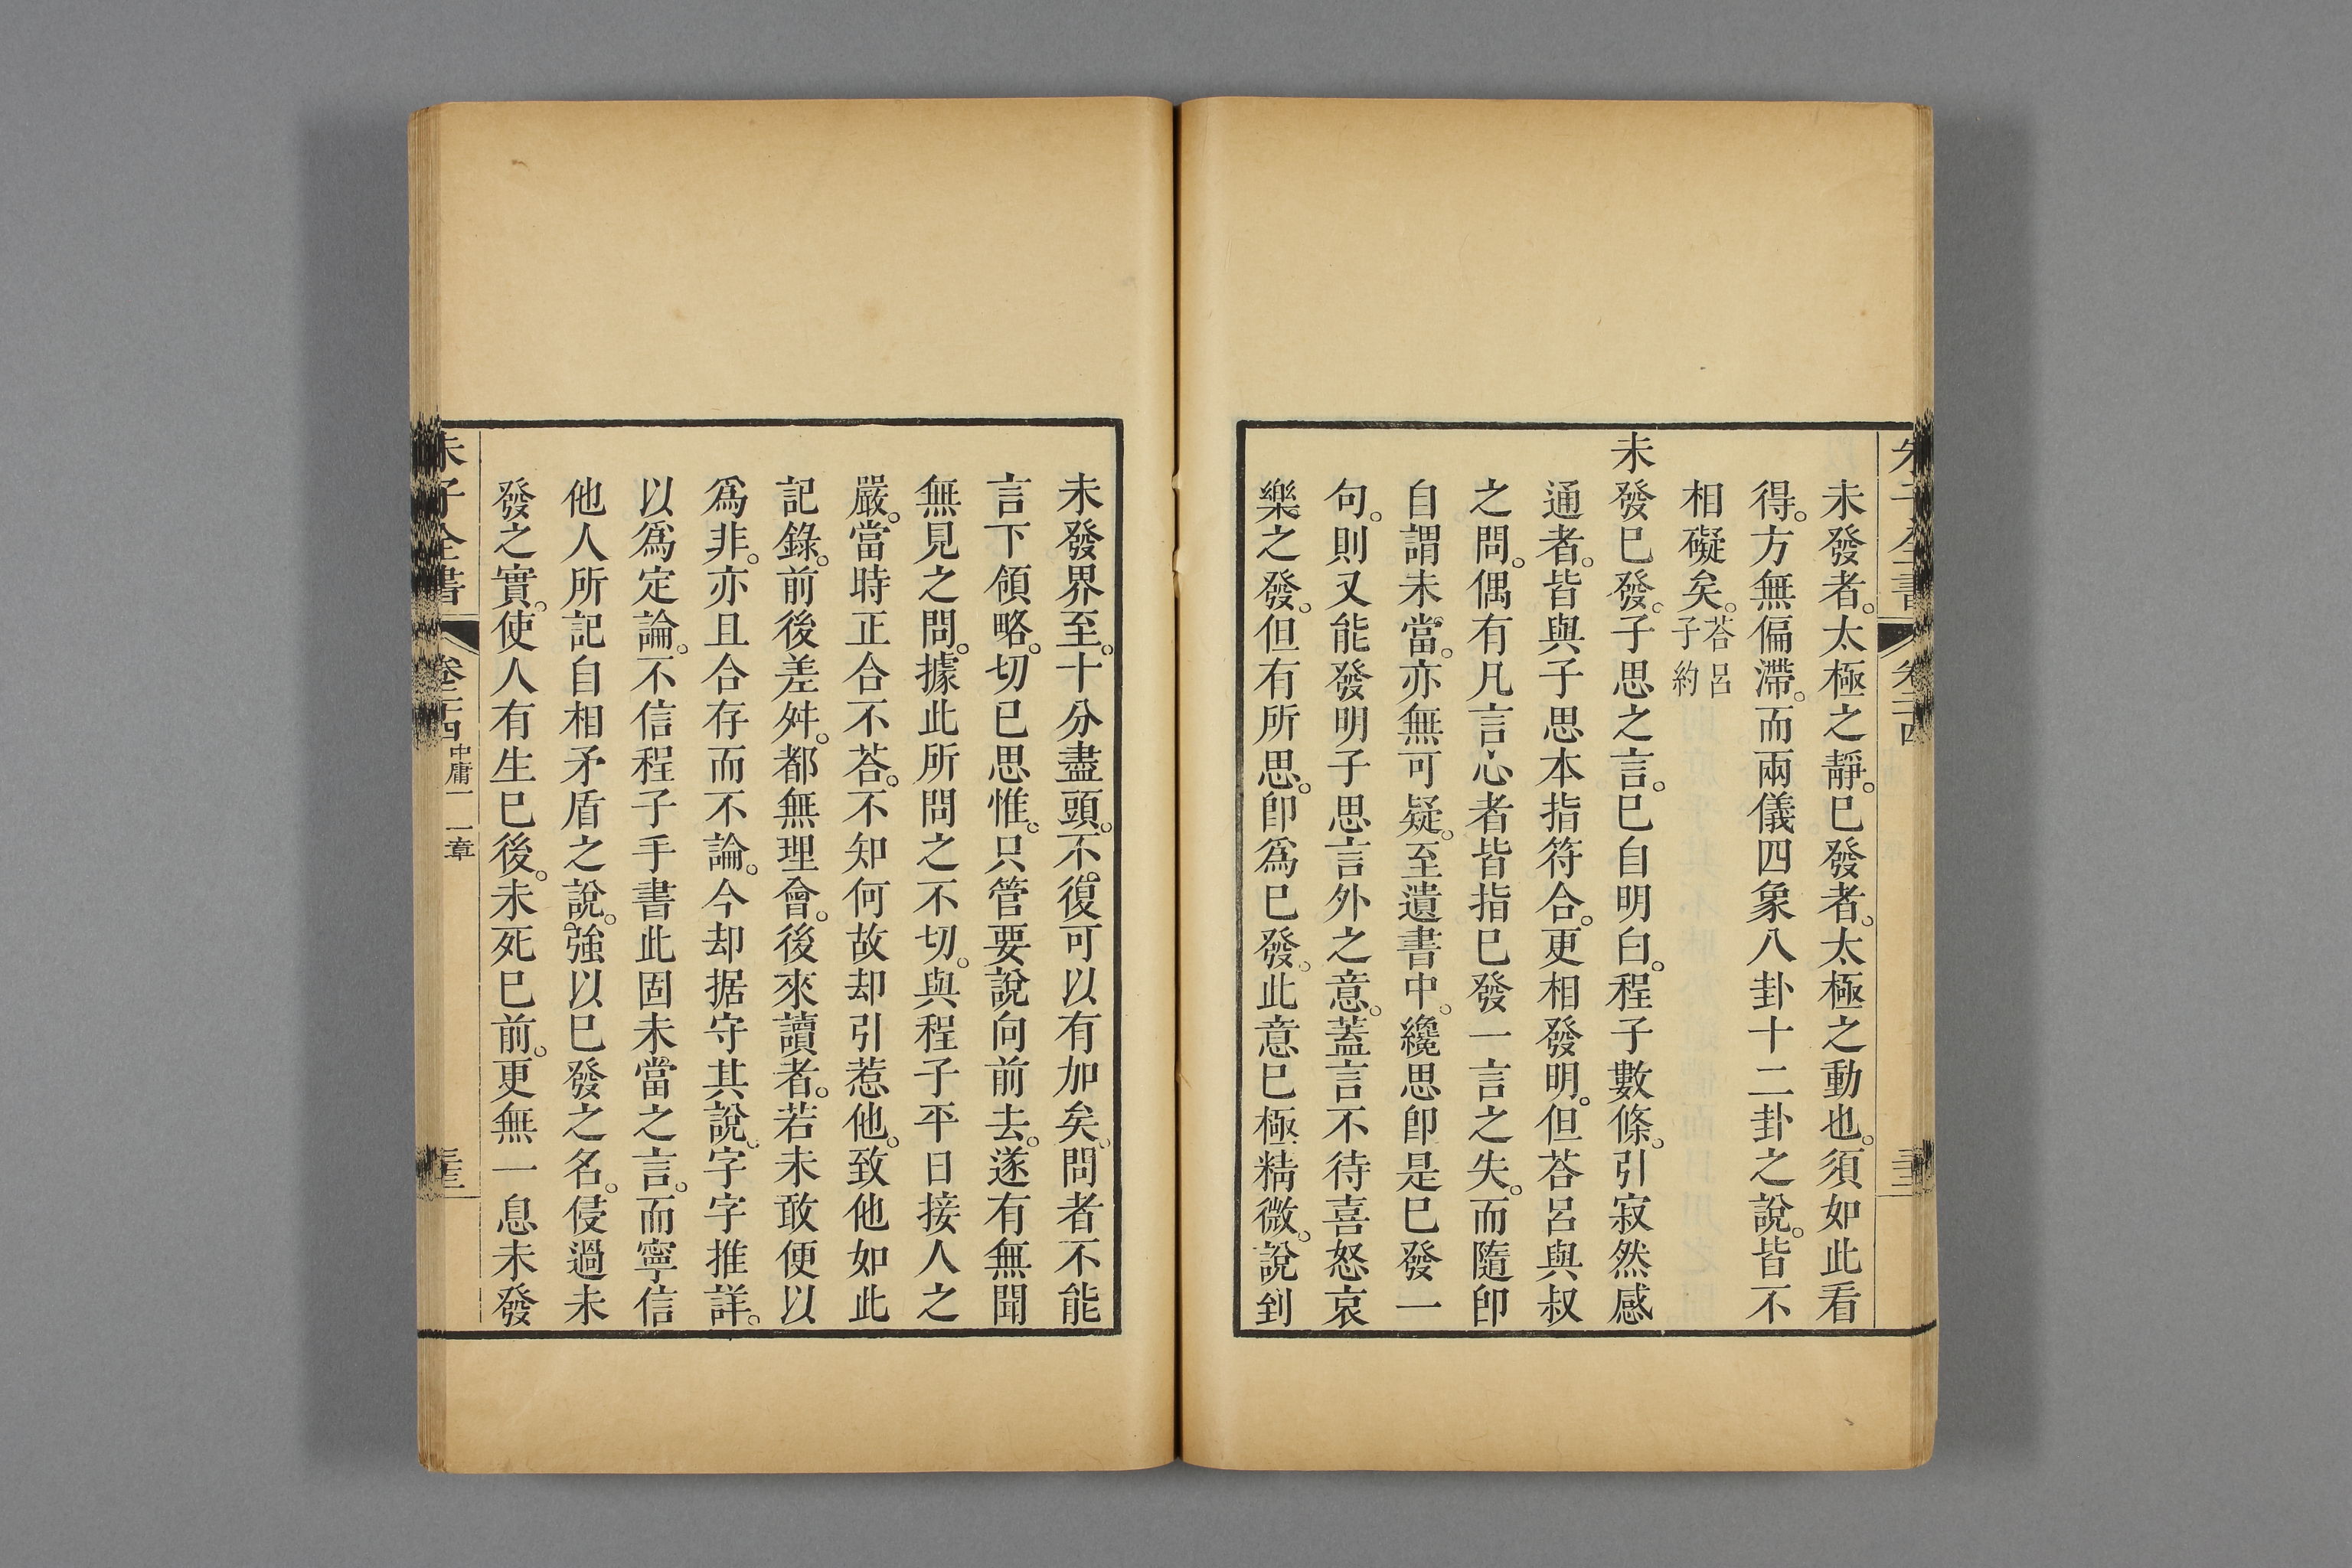 未發者。太極之靜。已發者。太極之動也。須如此看
得。方無偏滯。而兩儀四象八卦十二卦之說。皆不
相礙矣。荅呂子約
未發已發。子思之言。已自明白。程子數條。引寂然感
通者。皆與子思本指符合。更相發明。但荅呂與叔
之問。偶有凡言心者皆指已發一言之失。而隨卽
自謂未當。亦無可疑。至遺書中。纔思卽是已發一
句。則又能發明子思言外之意。蓋言不待喜怒哀
樂之發。但有所思。卽爲已發。此意已極精微。說到
未發界至。十分盡頭。不復可以有加矣。問者不能
言下領略。切已思惟。只管要說向前去。遂有無聞
無見之問。據此所問之不切。與程子平日接人之
嚴。當時正合不荅。不知何故却引惹他。致他如此
記錄。前後差舛。都無理會。後來讀者。若未敢便以
爲非。亦且合存而不論。今却据守其說。字字推詳。
以爲定論。不信程子手書此固未當之言。而寧信
他人所記自相矛盾之說。強以已發之名。侵過未
發之實。使人有生已後。未死已前。更無一息未發
朱子全書 卷二十四 中庸一 一章